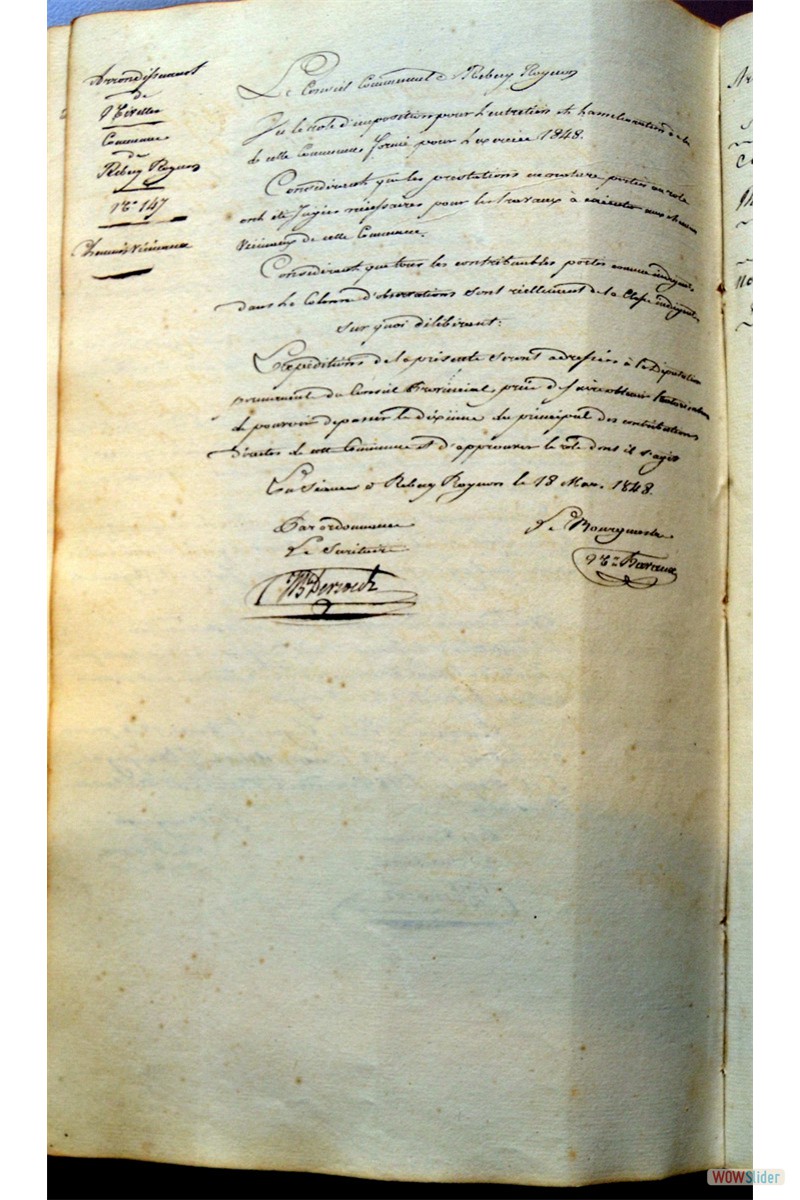 Arrondissement
de
Nivelles
Commune
de
Rebecq Rognon
N° 147
Chemins Vicinaux
Le Conseil Communal de Rebecq Rognon
Vu le role d'imposition pour l'entretien et l'amelioration de la
de cette Commune formé pour l'exercice 1848.
Considerant que les prestations en nature portées au role
ont été Jugées nécessaires pour les travaux à exécuter aux chemins
Vicinaux de cette Commune.
Considerant que tous les contribuables portés comme indigents
dans la Colonne d'observations sont réellement de la Classe indigente
sur quoi délibérant:
Expéditions de la présente seront adressées à la Députation
permanente du Conseil Provincial, priée de faire obtenir l'autorisation
de pouvoir depasser le dixième du principal des contributions
directes de cette Commune et d'approuver le role dont il s'agit
En Séance à Rebecq Rognon le 18 Mars 1848.
Par ordonnance
Le Secrétaire
Le Bourgmestre